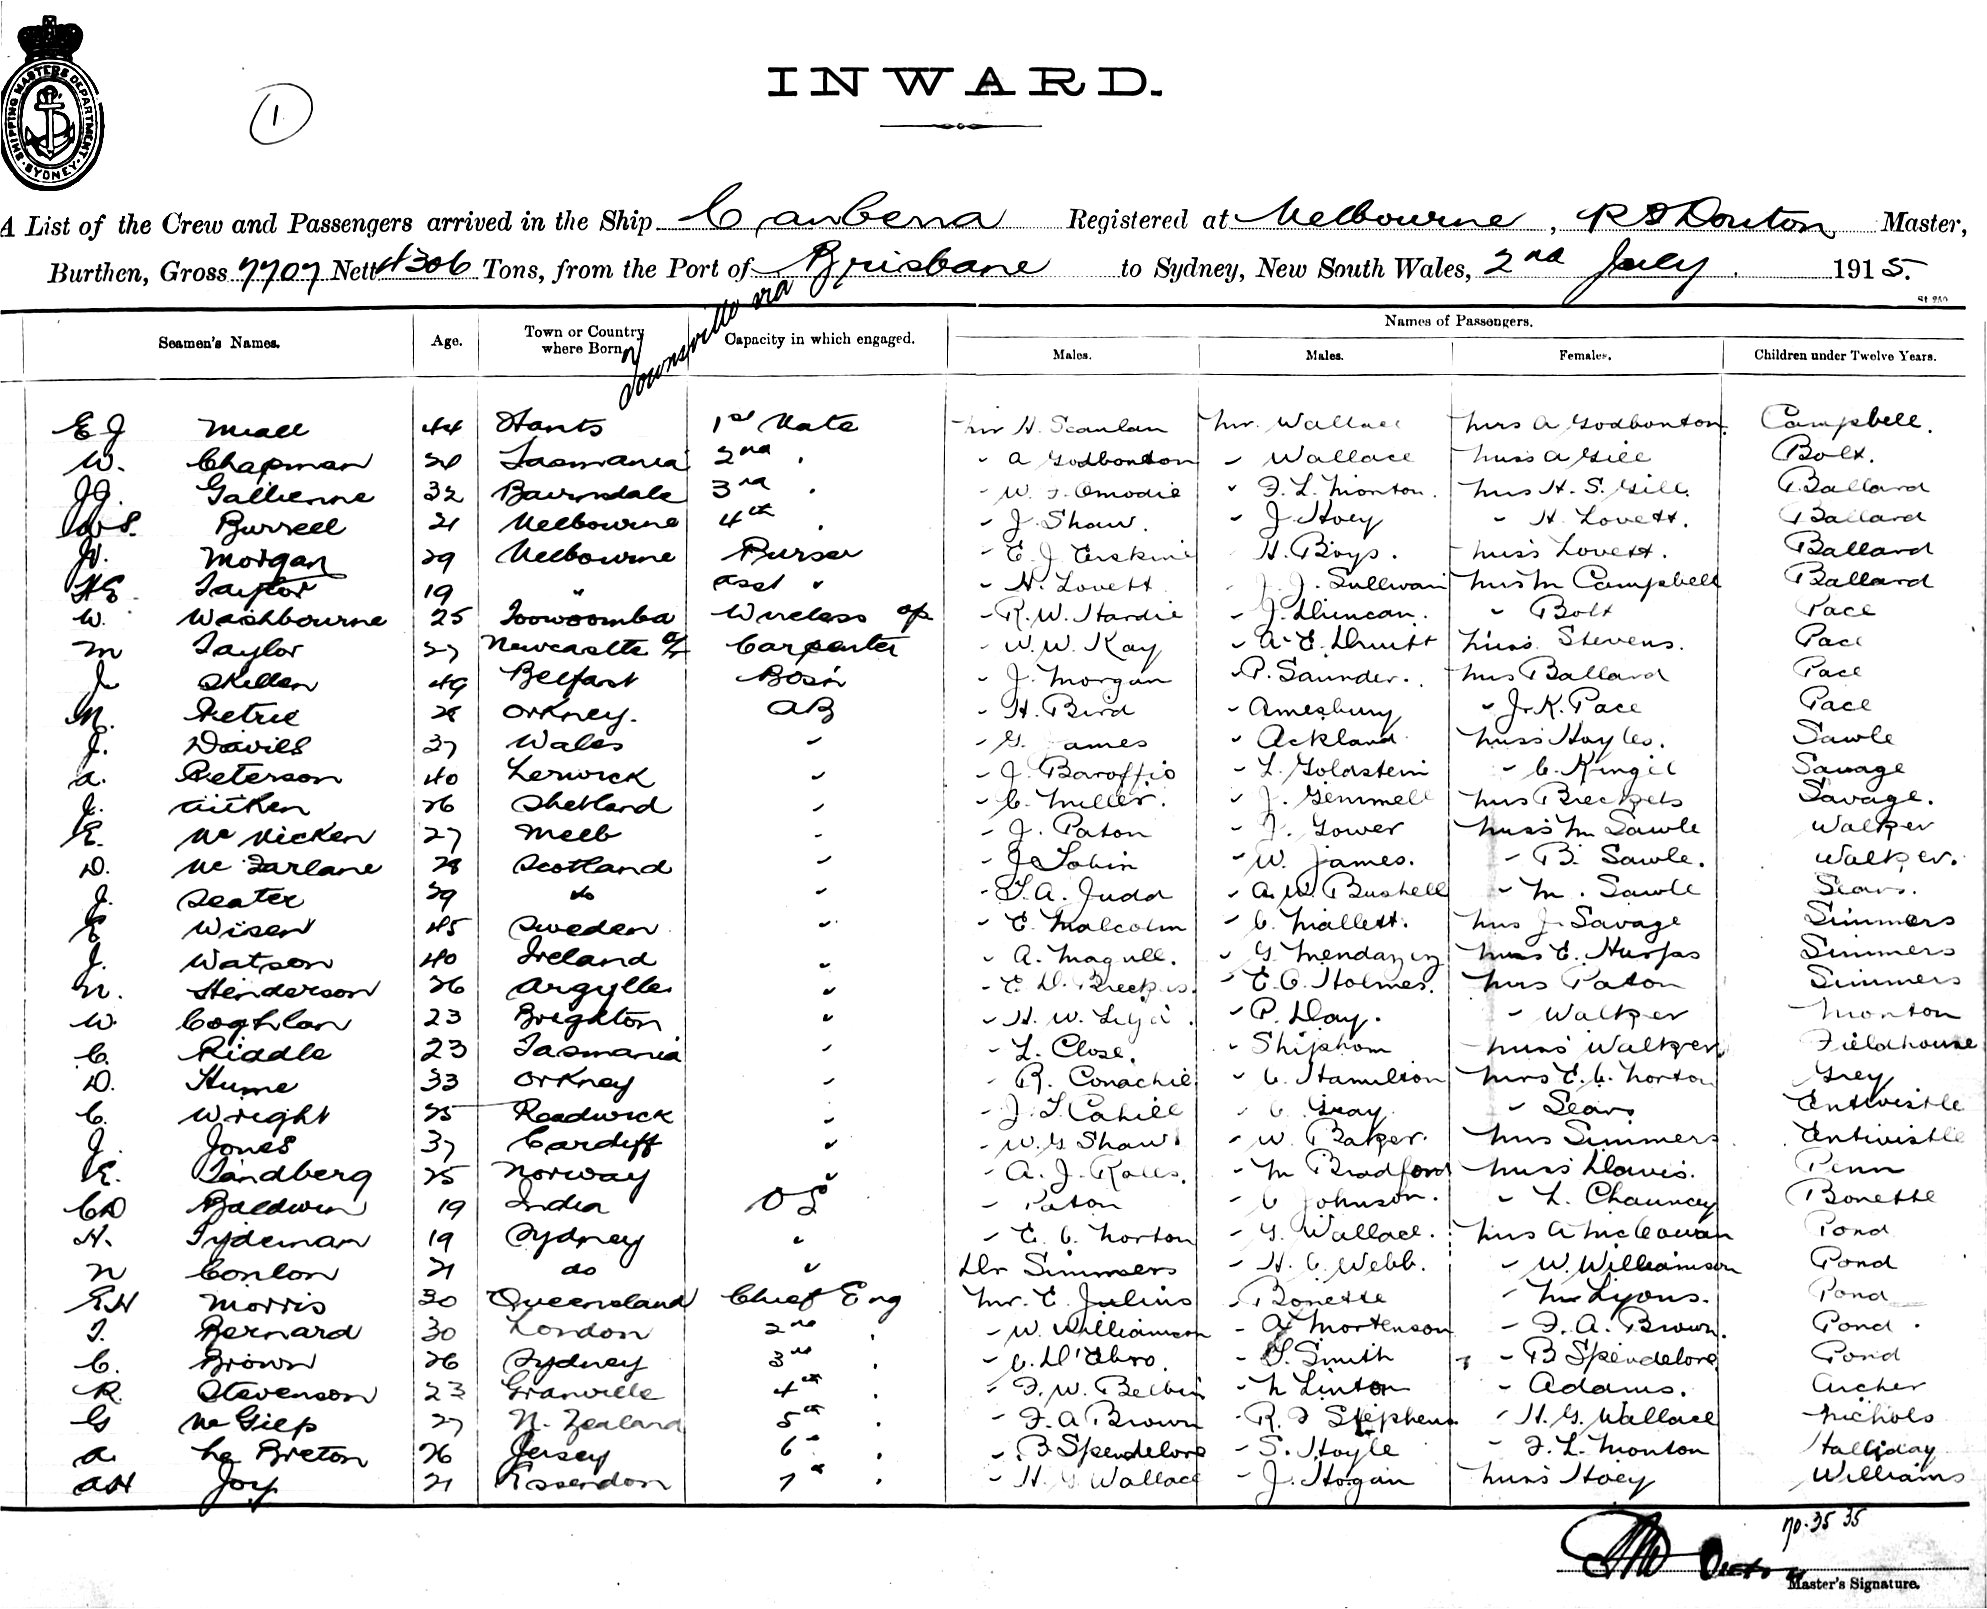 SHIPPING MASTERS DEPARTMENT SYDNEY
1
INWARD.
A List of the Crew and Passengers arrived in the Ship Canberra Registered at Melbourne, Master,
Burthen, Gross 7707 Nett 4306 Tons, from the Port of Townsville via Brisbane to Sydney, New South Wales, 2nd July 1915.
Names of Passengers.
Seamen's Names. Age. Town or Country where Born Capacity in which engaged. Males. Males. Females. Children under Twelve Years.
E J Meall 44 Hants 1st Mate Mr H. Scanlan Mr. Wallace Mrs A Godbonton Campbell.
W. Chapman Tasmania 2nd " - A Godbonton - Wallace Miss A Gill Bolt.
J.G. Gallienne 32 Bairnsdale 3rd " - W. J. Omodie - F. L. Monton. Mrs H. S. Gill. Ballard
Burrell 21 Melbourne 4th " - J. Shaw. - J. Hoey - H. Lovett. Ballard
Morgan 29 Melbourne Purser - E. J. Erskine H. Boys. Miss Lovett. Ballard
HE. Taylor 19 " Asst " - H. Lovett - J. J. Sullivan Mrs M Campbell Ballard
W. Washbourne 25 Toowoomba Wireless op - R. W. Hardie - J. Duncan. - Bolt Pace
M Taylor 27 Newcastle o/T Carpenter - W. W. Kay - A. E. Druitt Miss Stevens. Pace
J. Skillen 49 Belfast Bosn - J. Morgan - P. Saunder. Mrs Ballard Pace
M. Petrie 28 Orkney. AB - H. Bird - Amesbury - J. K. Pace Pace
J. Davies 37 Wales " - G. James - Ackland Miss Hayles. Sawle
A. Peterson 40 Lerwick " - J. Baroffio - L. Goldstein - C. Kingil Savage
J. Aitken 26 Shetland " - C. Miller. - J. Gemmell Mrs Breckels Savage.
E. McVicken 27 Melb " - J. Paton - J. Gower Miss M Sawle Walker
D. McFarlane 28 Scotland " - J Tobin - W. James. - B. Sawle. Walker.
J. Seater 29 do " - T. A. Judd - A. W. Bushell - M. Sawle Sears.
E Wisen 45 Sweden " - E. Malcolm - C. Mallett. Mrs J. Savage Simmers
J. Watson 40 Ireland " - A. Magull. - G. Mendan Mrs E. Simmers
N. Henderson 26 Argylle " - E. D. - E. C. Holmes. Mrs Paton Simmers
W. Coghlan 23 Brighton " - H. W. - P. Day. - Walker Monton
C. Riddle 23 Tasmania " - L. Close. - Shipshom Miss Walker Fieldhouse
D. Hume 33 Orkney " - R. Conachie - C. Hamilton Mrs E. C. Norton Grey
C. Wright 25 Roadwick " - J. L. Cahill - C. Gray - Sears Entwistle
J. Jones 37 Cardiff " - W. G Shaw - W. Baker. Mrs Simmers Entwistle
E. Tandberg 25 Norway " - A. J. Roles. - M Bradford Miss Davis. Penn
CD Baldwin 19 India OS - Paton - C Johnson. - L. Chauncey Bonette
H. Tydeman 19 Sydney " - E. C. Norton - G. Wallace. Mrs A McCowan Pond
N Conlon 21 do " Dr Simmers - H. C. Webb. - W. Williamson Pond
EH Morris 30 Queensland Chief Eng Mr. E. Julius - Bonette - M Lyons. Pond
T. Bernard 30 London 2nd " - W. Williamson - A Mortenson - F. A. Brown. Pond.
C. Brown 26 Sydney 3rd " - C. D'Ebro. - G. Smith - B Spendelove Pond
R. Stevenson 23 Granville 4th " - F. W. Belbin - N Linton - Adams. Archer
G McGiep 27 N. Zealand 5th " - F. A Brown - R. F Stephens - H. G. Wallace Nichols
A Le Breton 26 Jersey 6th " - B Spendelove - S. Hoyle - F. L. Monton Halliday
AH Joy 21 Essendon 7th " - H. G Wallace - J. Hogan Miss Hoey Williams
no. 35 35
Master's Signature.